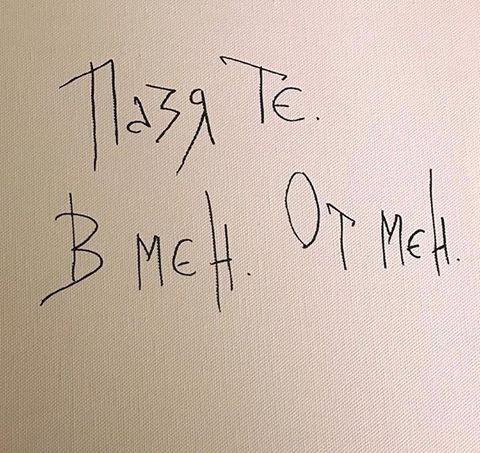 Пазя Те.
В мен. От мен.